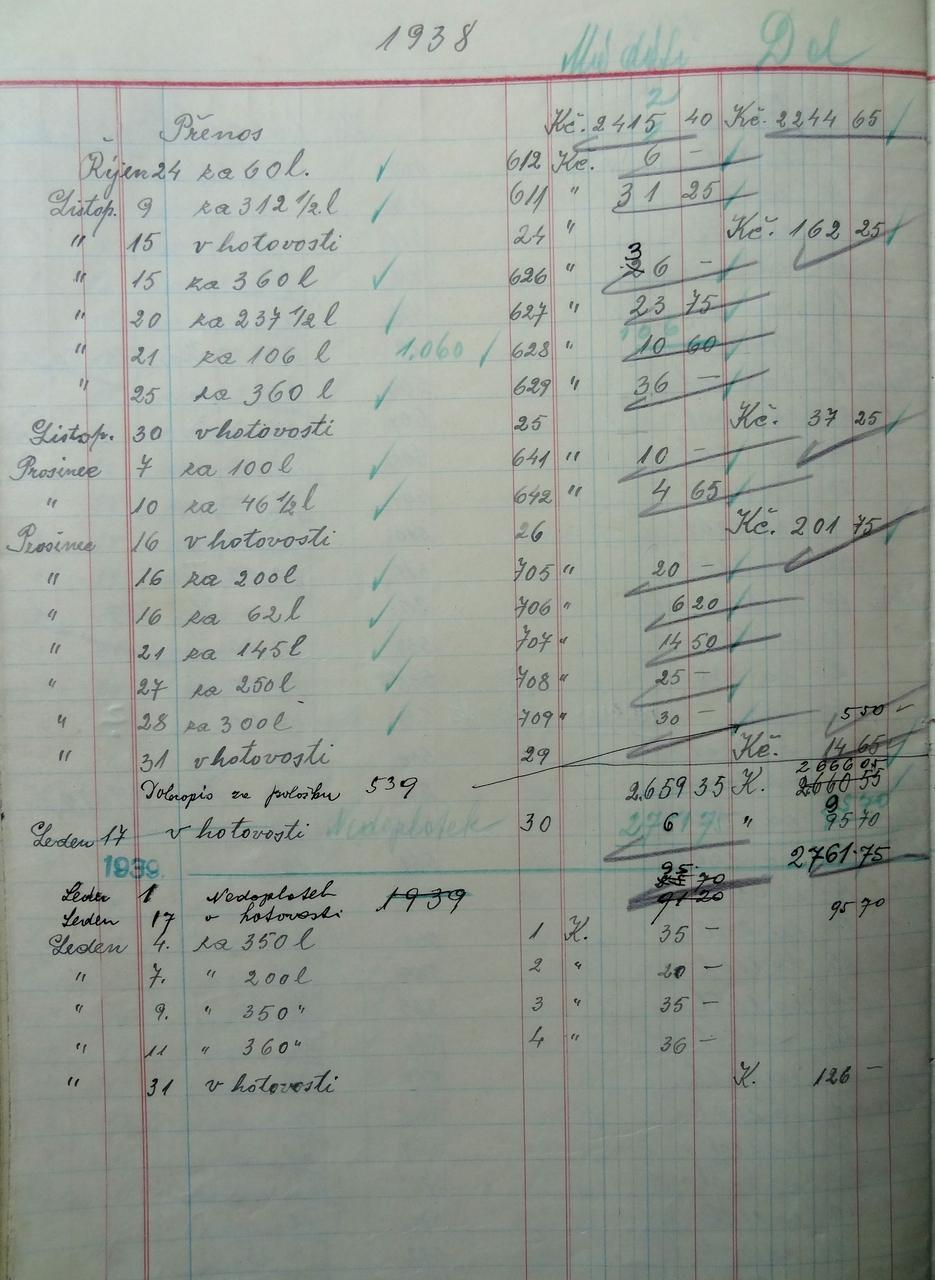 1938
Má dáti Dal
Přenos Kč. 2415 40 Kč. 2244 65
Říjen 24 za 60 l. 612 Kč. 6 -
Listop. 9 za 312 1/2 l 611 " 31 25
" 15 v hotovosti 24 " Kč. 162 25
" 15 za 360 l 626 " 36 -
" 20 za 237 1/2 l 627 " 23 75
" 21 za 106 l 1.060 628 " 10 60
" 25 za 360 l 629 " 36 -
Listop. 30 v hotovosti 25 Kč. 37 25
Prosinec 7 za 100 l 641 " 10 -
" 10 za 46 1/2 l 642 " 4 65
Prosinec 16 v hotovosti 26 Kč. 201 75
" 16 za 200 l 705 " 20 -
" 16 za 62 l 706 " 6 20
" 21 za 145 l 707 " 14 50
" 27 za 250 l 708 " 25 -
" 28 za 300 l 709 " 30 - 5 50 -
" 31 v hotovosti 29 Kč. 14 65
2.666 05
Dobropis za položku 539 2.659 35 K. 2660 55
Leden 17 v hotovosti Nedoplatek 30 6 " 95 70
1939. 2761.75
Leden 1 Nedoplatek 1939 95. 70
91 20
Leden 17 v hotovosti 95 70
Leden 4. za 350 l 1 K. 35 -
" 7. " 200 l 2 " 20 -
" 9. " 350 " 3 " 35 -
" 11 " 360 " 4 " 36 -
" 31 v hotovosti K. 126 -